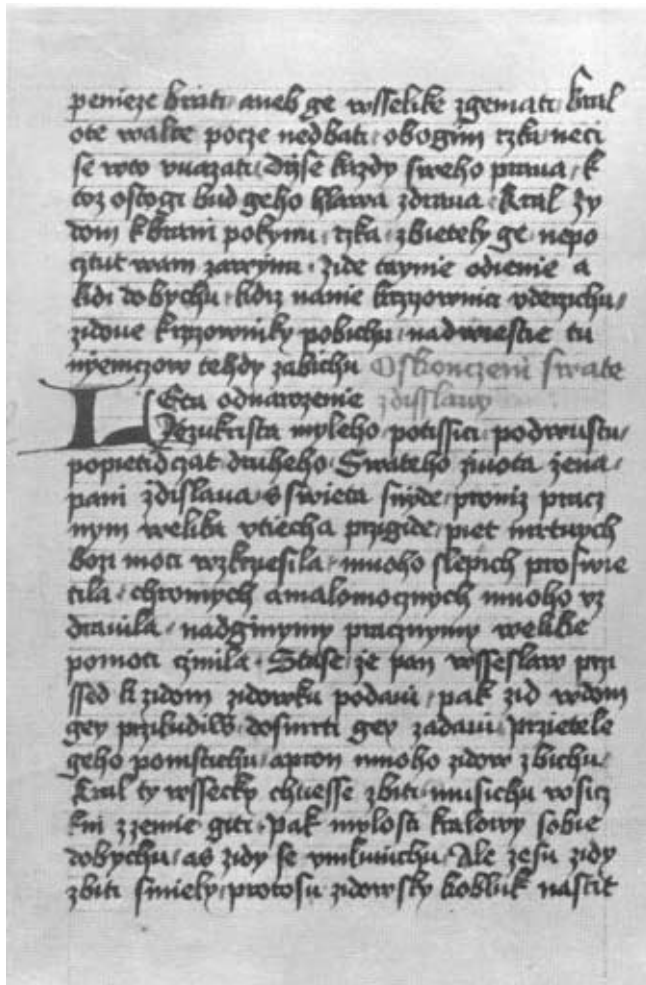 penieze brati· aneb ge wsselike zgimati kral
ote walce pocze nedbati· obogim rzka· neci
se woto vuazati· Dijse kazdy sweho prawa· k
toz ostogi bud geho hlawa zdrawa· Kral zy
dom kbrani pokynu· rzka· zbietely ge· nepo
cztut wam zawynu· Zide taynie odienie a
kidi dobychu· kdiz nanie krzizownici vderzichu·
zidoue krzizowniky pobichu· nadwiestie tu
nyemczow tehdy zabichu Oskonczeni swate
LEta odnarozenie zdisslawy
Jezukrista myleho· potissici· podwustu·
popietidczat druheho· Swateho ziwota zena·
pani zdislaua· s swieta snyde· proniz pracz
nym welika vtiecha przigide· piet mrtwych
bozi moci wzkrzesila· mnoho slepich proswie
tila· chromych amalomocznych mnoho vz
drawila· nadginymy pracznymy welikie
pomoci czinila· Stase ze pan wsseslaw przi
ssed k zidom zidowku podaui· pak zid wdom
gey przibudiw· dosmrti gey zadaui· przietele
geho pomstichu· apron mnoho zidow zbichu·
Kral ty wssecky chtiesse zbiti· musichu wsicz
kni z zemie giti· pak mylosti kralowy sobie
dobychu· as zidy se vmluwichu· Ale zesu zidy
zbiti smiely· protosu zidowsky kobluk nastit